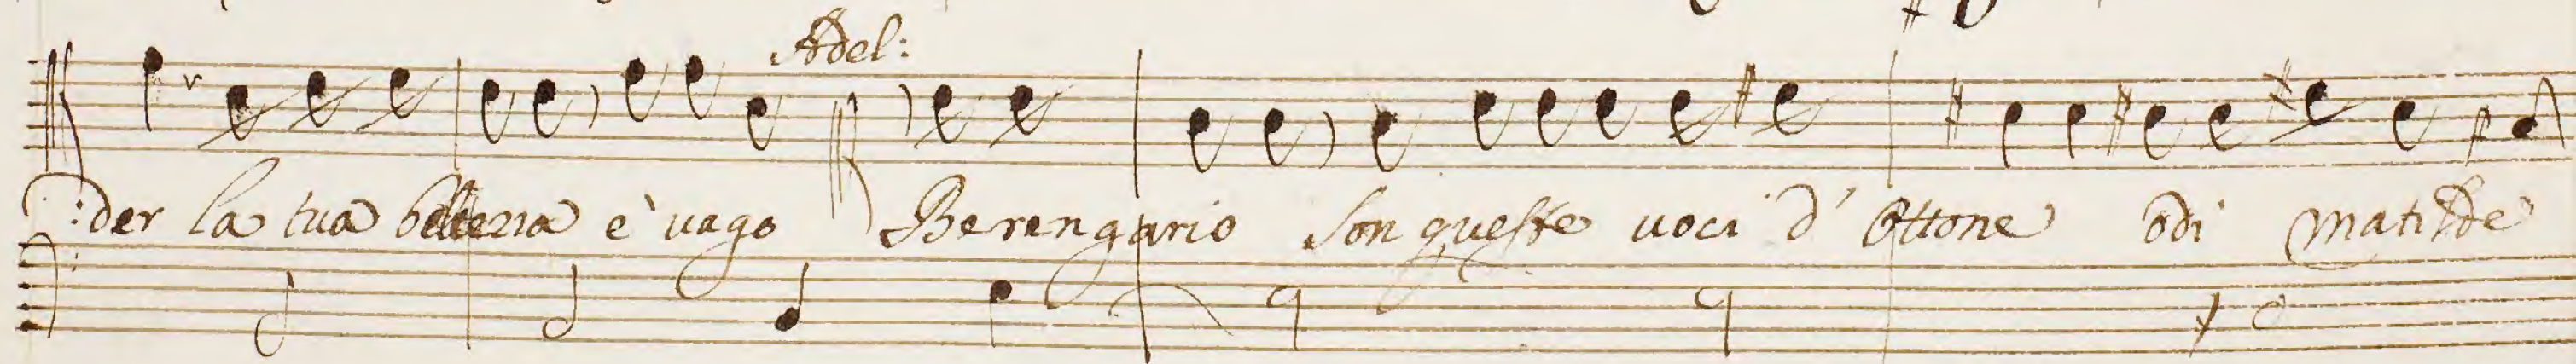 Adel:
:der la tua bellezza è vago Berengario son queste voci d' Ottone odi Matilde